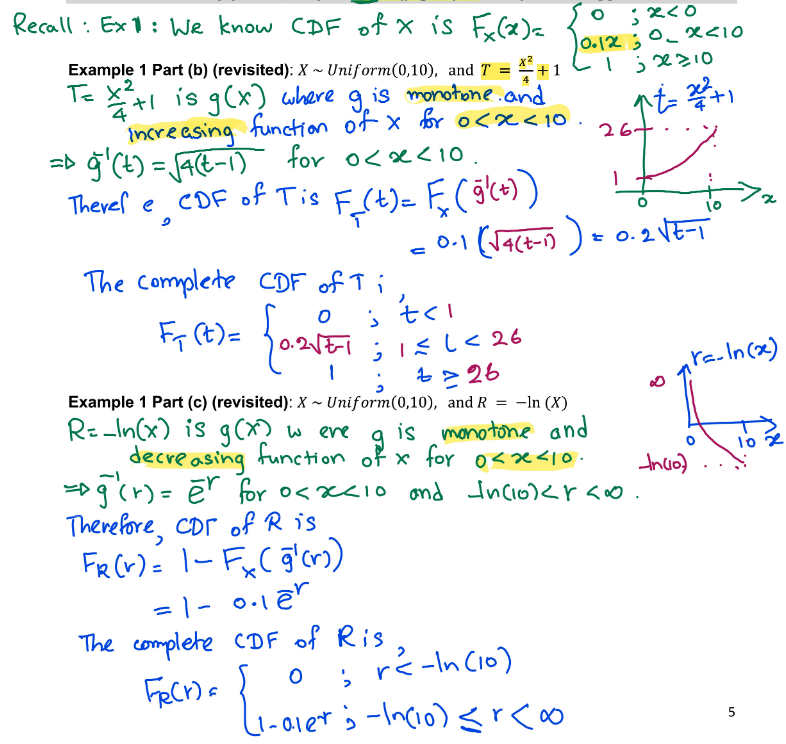 Recall : Ex 1 : We know CDF of X is F_X(x) = { 0 ; x<0
0.1x ; 0_ x<10
1 ; x≥10
Example 1 Part (b) (revisited): X ~ Uniform(0,10), and T = x²/4 + 1
T = X²/4 +1 is g(x) where g is monotone and
increasing function of x for 0<x<10.
⇒ g⁻¹(t) = √4(t-1) for 0<x<10.
Theref e, CDF of T is F_T(t) = F_X(g⁻¹(t))
= 0.1(√4(t-1)) = 0.2√t-1
t = x²/4 +1
26
1
0 10 x
The complete CDF of T i,
F_T(t) = { 0 ; t<1
0.2√t-1 ; 1 ≤ t < 26
1 ; t ≥ 26
Example 1 Part (c) (revisited): X ~ Uniform(0,10), and R = −ln (X)
R = -ln(x) is g(x) w ere g is monotone and
decreasing function of x for 0<x<10.
⇒ g⁻¹(r) = e⁻ʳ for 0<x<10 and -ln(10)<r<∞.
r = -ln(x)
∞
0 10 x
-ln(10)
Therefore, CDF of R is
F_R(r) = 1 - F_X(g⁻¹(r))
= 1 - 0.1e⁻ʳ
The complete CDF of R is,
F_R(r) = { 0 ; r < -ln(10)
1-0.1e⁻ʳ ; -ln(10) ≤ r < ∞
5